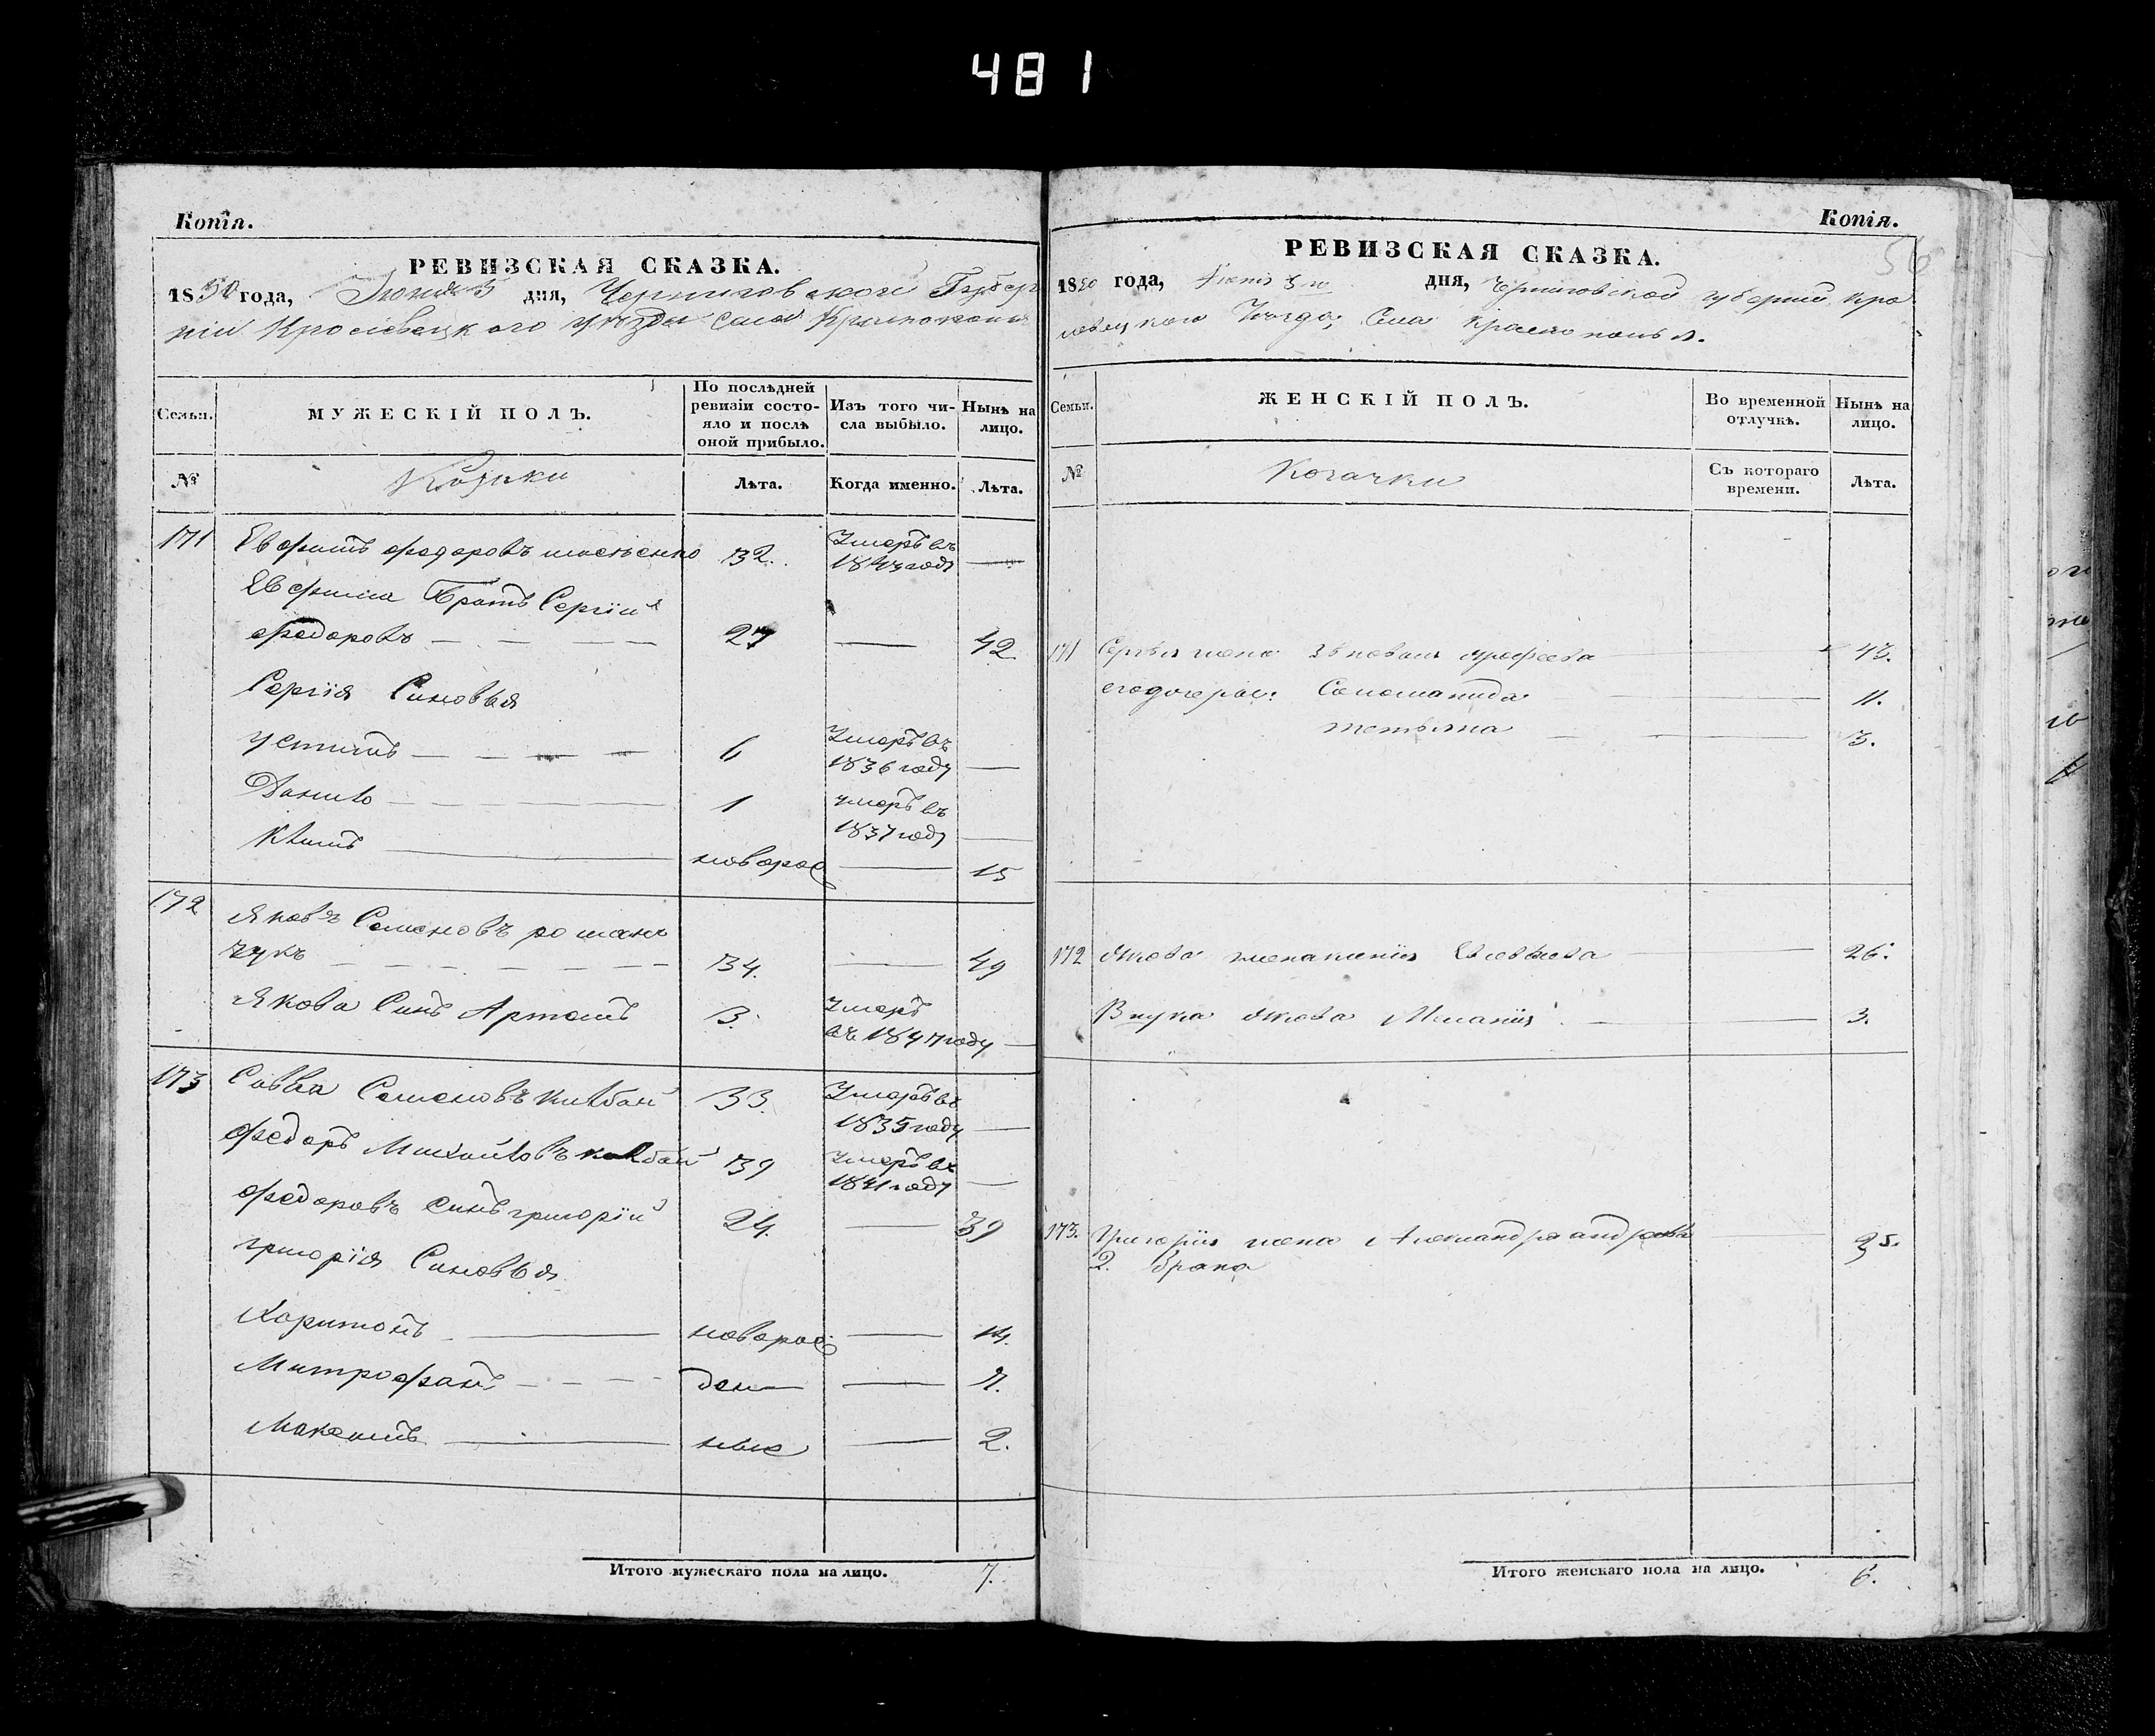 481
Копія.
РЕВИЗСКАЯ СКАЗКА.
1850 года, Іюня 5 дня, Черниговской Губер
ніи Кролевецкого уезда села Краснополья
Семьи. МУЖЕСКІЙ ПОЛЪ. По послѣдней ревизіи состояло и послѣ оной прибыло. Изъ того числа выбыло. Нынѣ на лицо.
№ Козаки Лѣта. Когда именно. Лѣта.
171 Евфимъ федоровъ 32. Умеръ въ 1843 году —
Евфима Братъ Сергій
федоровъ — 27 — 42
Сергія Синовья
устимъ — 6 Умеръ въ 1836 году —
Данило — 1 умеръ въ 1837 году —
Климъ — новорож — 15
172 Яковъ Семеновъ роман
чукъ — 34. — 49
Якова Синъ Артемъ 3. Умеръ въ 1847 году —
173 Савва Семеновъ 33. Умеръ въ 1835 году —
федоръ Михайловъ 39 Умеръ въ 1841 году —
федоровъ Синъ григорій 24. — 39
григорія Синовья
Харитонъ — новорож — 14.
Митрофанъ — ден — 7.
Максимъ — ные — 2.
Итого мужескаго пола на лицо. 7.
Копія.
56
РЕВИЗСКАЯ СКАЗКА.
1850 года, дня, Черниговской губерніи Кро
левецкого Уезда, Села Краснополья.
Семьи. ЖЕНСКІЙ ПОЛЪ. Во временной отлучкѣ. Нынѣ на лицо.
№ Козачки Съ котораго времени. Лѣта.
171 Сергѣя жена — 43.
его дочери: Соломанида — 11.
татьяна — 3.
172 Якова жена — 26.
Внука Якова Миланія — 3.
173. Григорія жена Александра андреева — 35.
2. Брака
Итого женскаго пола на лицо. 6.